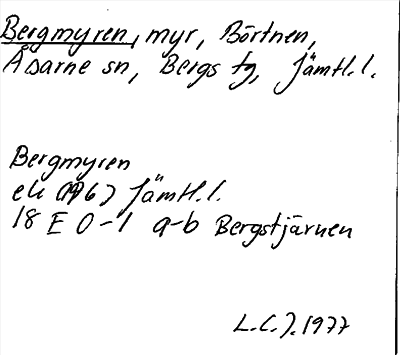 Bergmyren, myr, Börtnen,
Åsarne sn, Bergs tg, Jämtl.l.
Bergmyren
ek (1967) Jämtl.l.
18 E 0-1 a-b Bergstjärnen
L.C.J. 1977